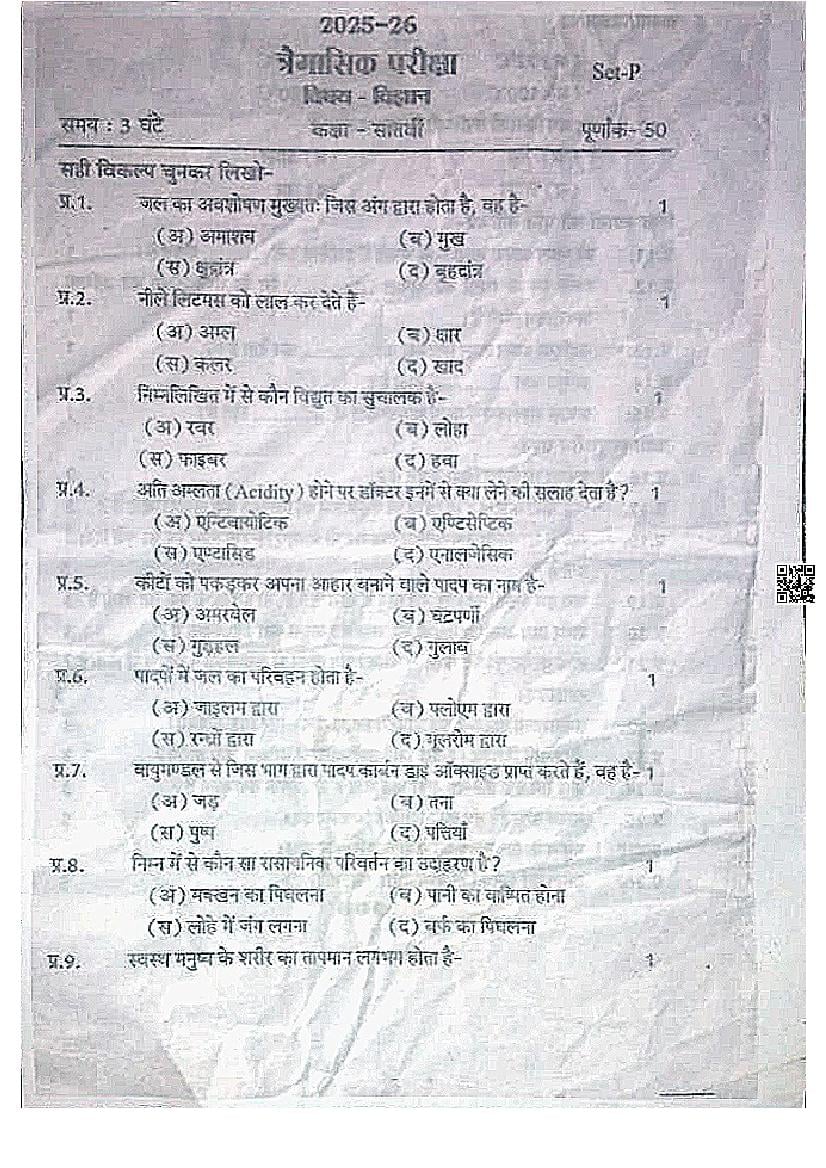 2025-26
त्रैमासिक परीक्षा
Set-P
विषय - विज्ञान
समय : 3 घंटे कक्षा - सातवीं पूर्णांक- 50
सही विकल्प चुनकर लिखो-
प्र.1. जल का अवशोषण मुख्यतः जिस अंग द्वारा होता है, वह है- 1
(अ) अमाशय (ब) मुख
(स) क्षुद्रांत्र (द) बृहदांत्र
प्र.2. नीले लिटमस को लाल कर देते है- 1
(अ) अम्ल (ब) क्षार
(स) कलर (द) खाद
प्र.3. निम्नलिखित में से कौन विद्युत का सुचालक है- 1
(अ) रबर (ब) लोहा
(स) फाइबर (द) हवा
प्र.4. अति अम्लता (Acidity) होने पर डॉक्टर इनमें से क्या लेने की सलाह देता है? 1
(अ) एन्टिबायोटिक (ब) एण्टिसेप्टिक
(स) एण्टासिड (द) एनालजेसिक
प्र.5. कीटों को पकड़कर अपना आहार बनाने वाले पादप का नाम है- 1
(अ) अमरबेल (ब) घटपर्णी
(स) गुड़हल (द) गुलाब
प्र.6. पादपों में जल का परिवहन होता है- 1
(अ) जाइलम द्वारा (ब) फ्लोएम द्वारा
(स) रन्ध्रों द्वारा (द) मूलरोम द्वारा
प्र.7. वायुमण्डल से जिस भाग द्वारा पादप कार्बन डाइ ऑक्साइड प्राप्त करते हैं, वह है- 1
(अ) जड़ (ब) तना
(स) पुष्प (द) पत्तियाँ
प्र.8. निम्न में से कौन सा रासायनिक परिवर्तन का उदाहरण है? 1
(अ) मक्खन का पिघलना (ब) पानी का वाष्पित होना
(स) लोहे में जंग लगना (द) बर्फ का पिघलना
प्र.9. स्वस्थ मनुष्य के शरीर का तापमान लगभग होता है- 1